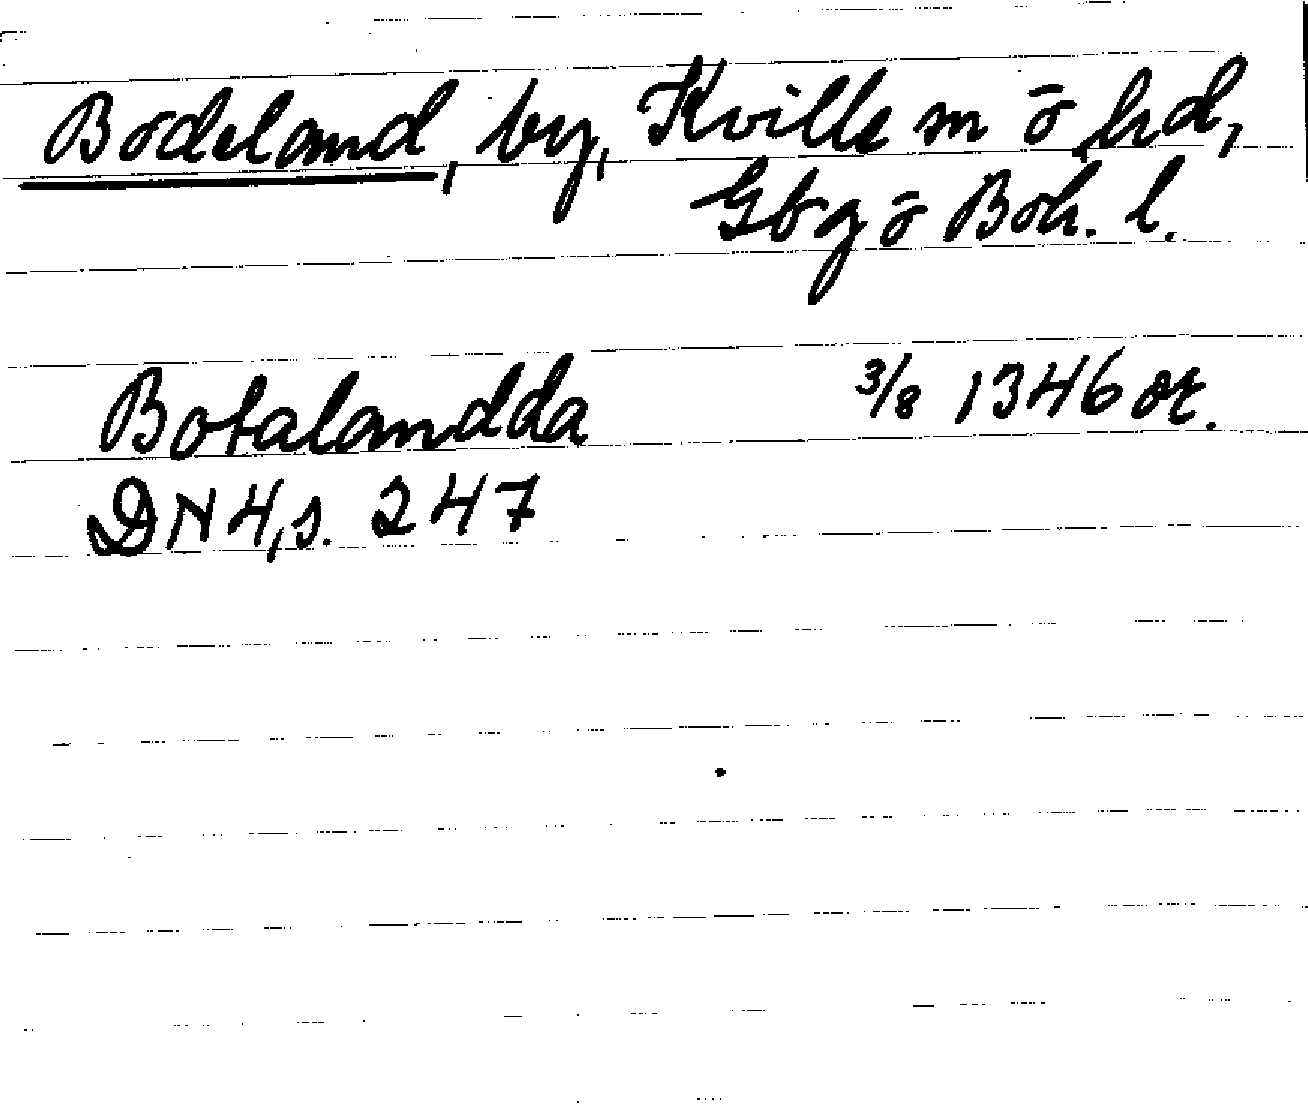 Bodeland, by, Kville sn ō hd,
Gbg ō Boh. l.
Botalandda 3/8 1346 or.
DN 4, s. 247